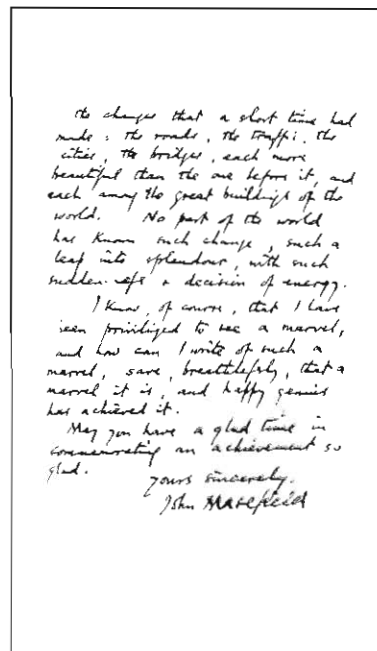 the changes that a short time had
made: the roads, the traffic, the
cities, the bridges, each more
beautiful than the one before it, and
each among the great buildings of the
world. No part of the world
has known such change, such a
leap into splendour, with such
suddenness & decision of energy.
I know, of course, that I have
been priviliged to see a marvel,
and how can I write of such a
marvel, save, breathlessly, that a
marvel it is, and happy genius
has achieved it.
May you have a glad time in
commemorating an achievement so
glad.
Yours sincerely.
John Masefield